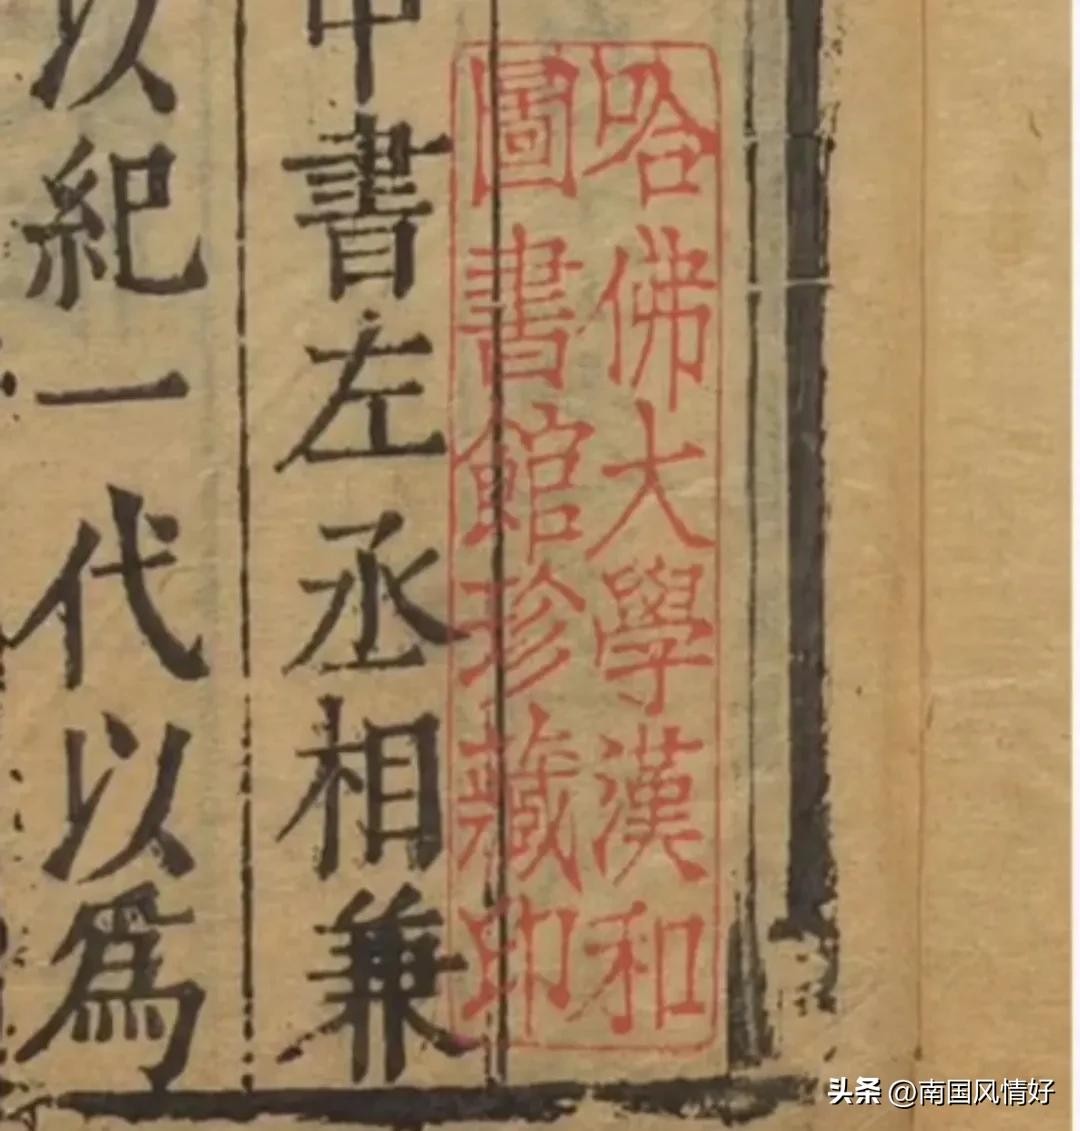 哈佛大學漢和
圖書館珍藏印
中書左丞相兼
以紀一代以爲
头条 @南国风情好